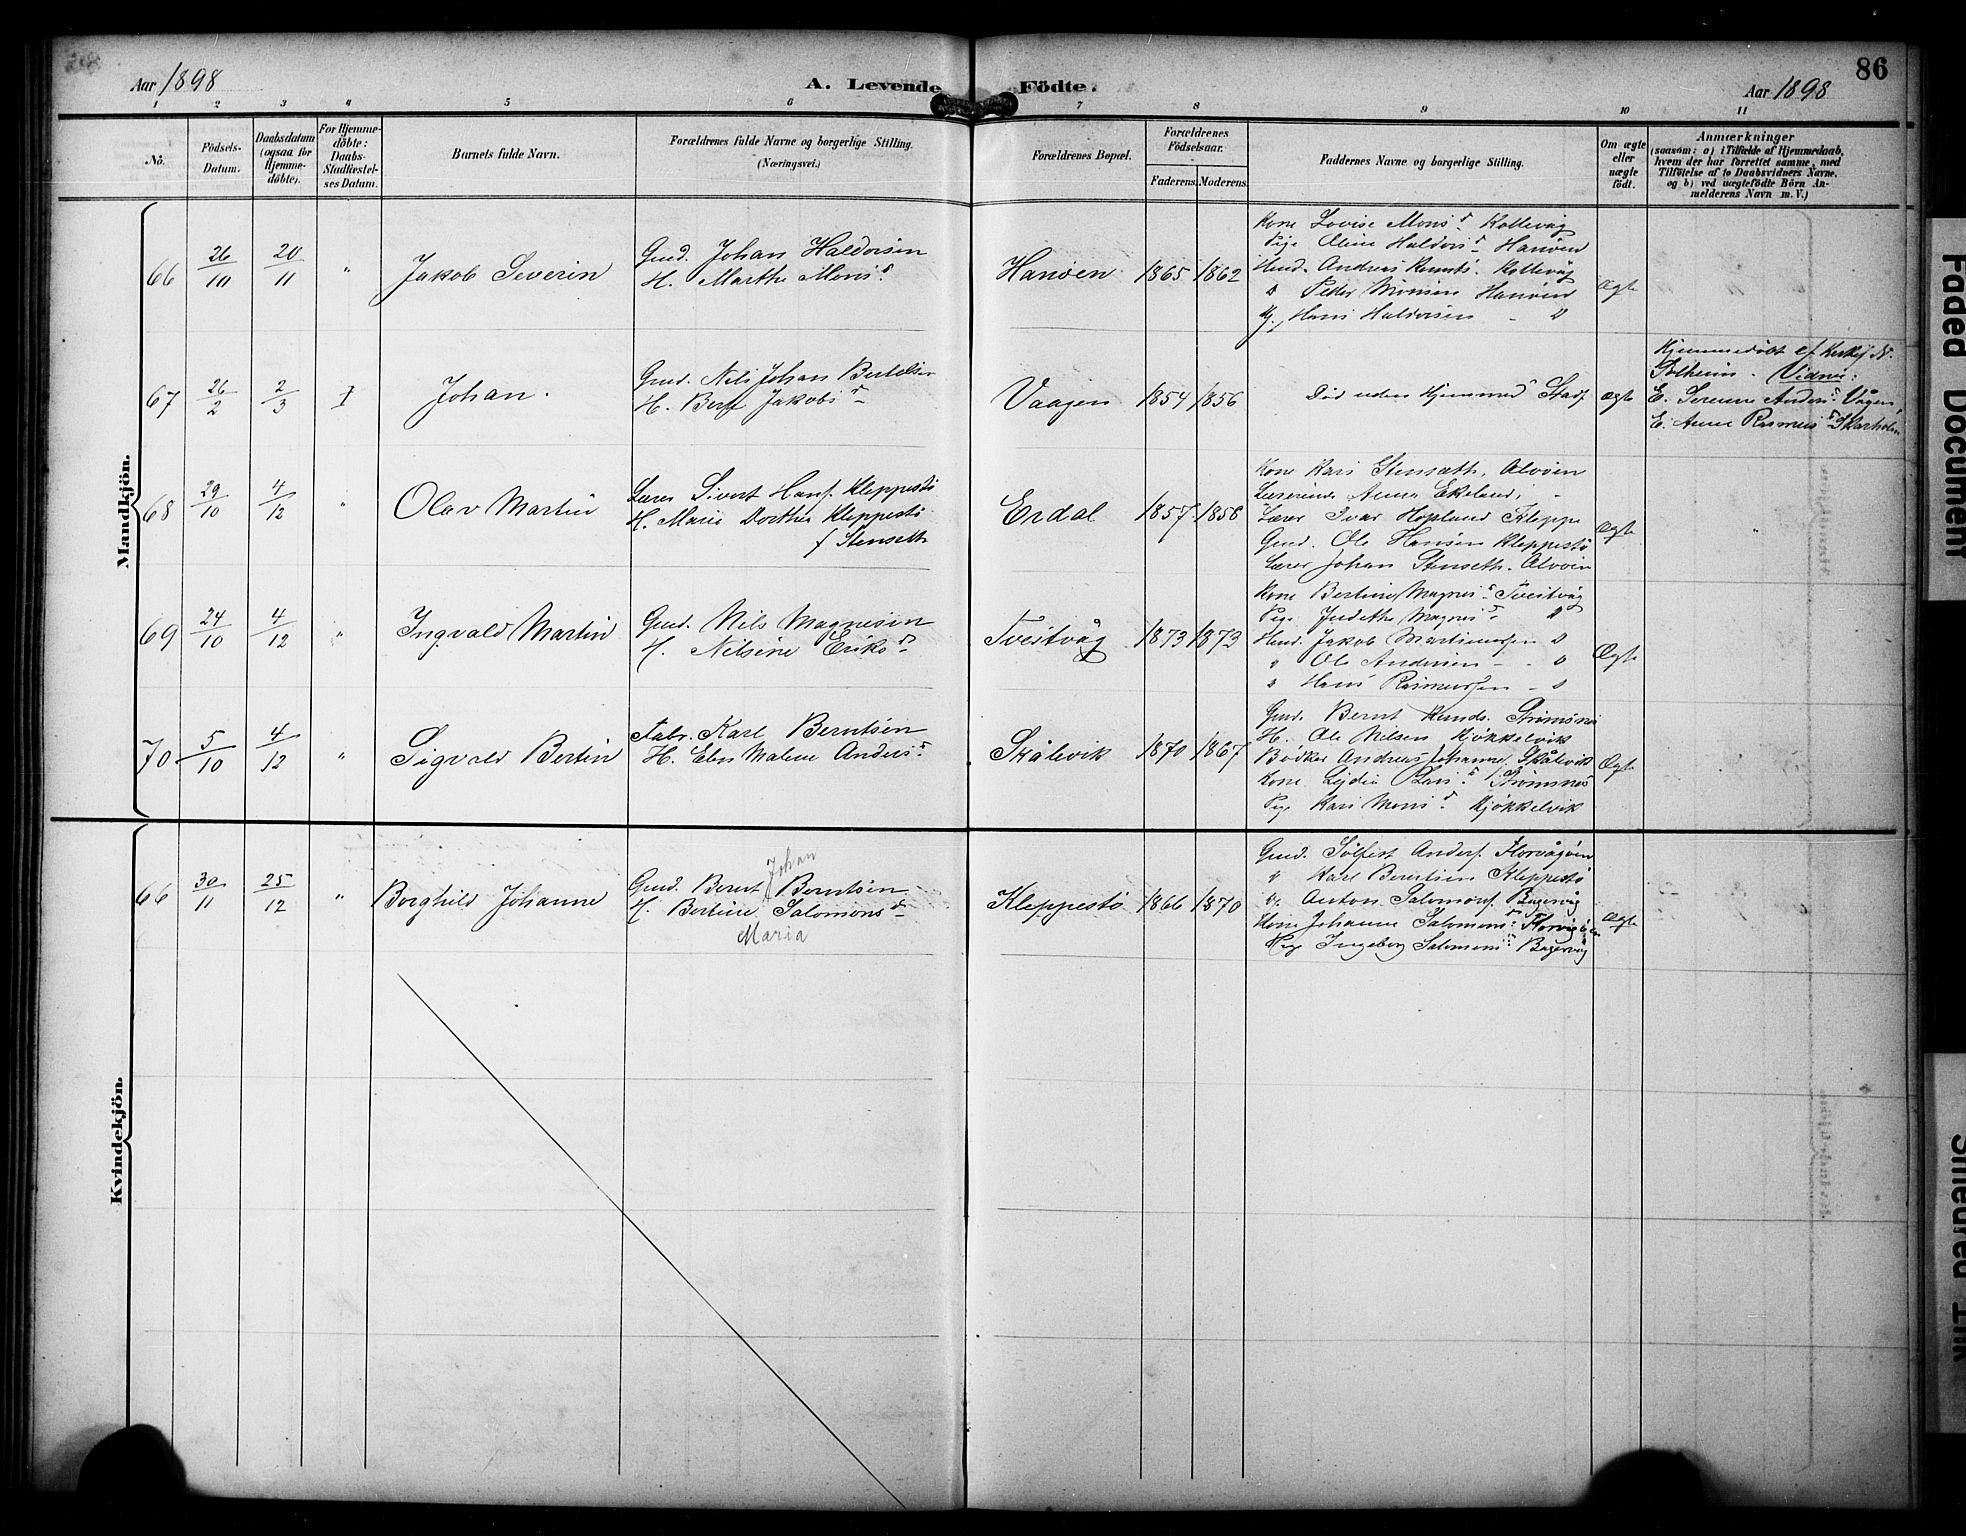 Aar 1898
A. Levende Födte.
Aar 1898
86
1 2 3 4 5 6 7 8 9 10 11
No.
Födsels-Datum.
Daabsdatum (ogsaa for Hjemme-döbte).
For Hjemme-döbte: Daabs-Stadfæstel-ses Datum.
Barnets fulde Navn.
Forældrenes fulde Navne og borgerlige Stilling.
(Næringsvei.)
Forældrenes Bopæl.
Forældrenes Födselsaar.
Faderens. Moderens.
Faddernes Navne og borgerlige Stilling.
Om ægte eller uægte födt.
Anmærkninger
(saasom: a) i Tilfælde af Hjemmedaab,
hvem der har forrettet samme, med
Tilföielse af to Daabsvidners Navne,
og b) ved uægtefödte Börn An-
melderens Navn m. V.)
Mandkjön.
66 26/10 20/11 " Jakob Severin
Gmd. Johan Haldorsen
H. Marthe Monsd.
Hanöen 1865 1862
Kone Lovise Monsd. Kollevåg
Pige Oline Haldorsd. Hanöen
Gmd. Andreas Kollevåg
" Peder Monsen Hanöen
Ug. Hans Haldorsen - "
Ægte
67 26/2 2/3 Johan.
Gmd. Nils Johan Bertelsen
H. Jakobsd.
Vaagen 1854 1856
Död uden Hjemmed. Stadf.
Ægte
Hjemmedöbt af N.
Solheim. Vidner:
E. Serene Andersd. Vågen,
E. Anne Rasmusd. Skarholm
68 29/10 4/12 " Olav Martin
Lærer Sivert Hans. Kleppestö
H. Marie Dorthea Kleppestö
f. Stenseth
Erdal 1857 1858
Kone Kari Stenseth, Alvöen
Lærerinde Anna Ekeland, "
Lærer Ivar Hopland Kleppe
Gmd. Ole Hansen Kleppestö
Lærer Johan Stenseth. Alvöen
Ægte "
69 24/10 4/12 " Ingvald Martin
Gmd. Nils Magnesen
H. Nilsine Eriksd.
Tveitvåg 1873 1873
Kone Bertine Magnesd. Tveitvåg
Pige Judithe Magnesd. "
Gmd. Jakob Martinussen "
" Ole Andersen - - "
" Hans Rasmussen - "
Ægte
70 5/10 4/12 " Sigvald Bertin
Fabr. Karl Berntsen
H. Elen Malene Andersd.
Skålevik 1870 1867
Gmd. Bernt Strömsnes
H. Ole Nilsen Kjökkelvik
Bödker Andreas Johannes. Skålevik
Kone Lydia Larsd. Strömsnes
Pige Kari Monsd. Kjökkelvik
Ægte
Kvindekjön.
66 30/11 25/12 " Borghild Johanne
Johan
Gmd. Bernt Berntsen
H. Bertine Salomonsd.
Maria
Kleppestö 1866 1870
Gmd. Sölfest Anders. Florvågöen
" Karl Berntsen Kleppestö
Ug. Anton Salomons.
Kone Johanne Salomonsd. Florvågöen
Pige Ingeborg Salomonsd.
Ægte
Faded Document
Smeared Ink